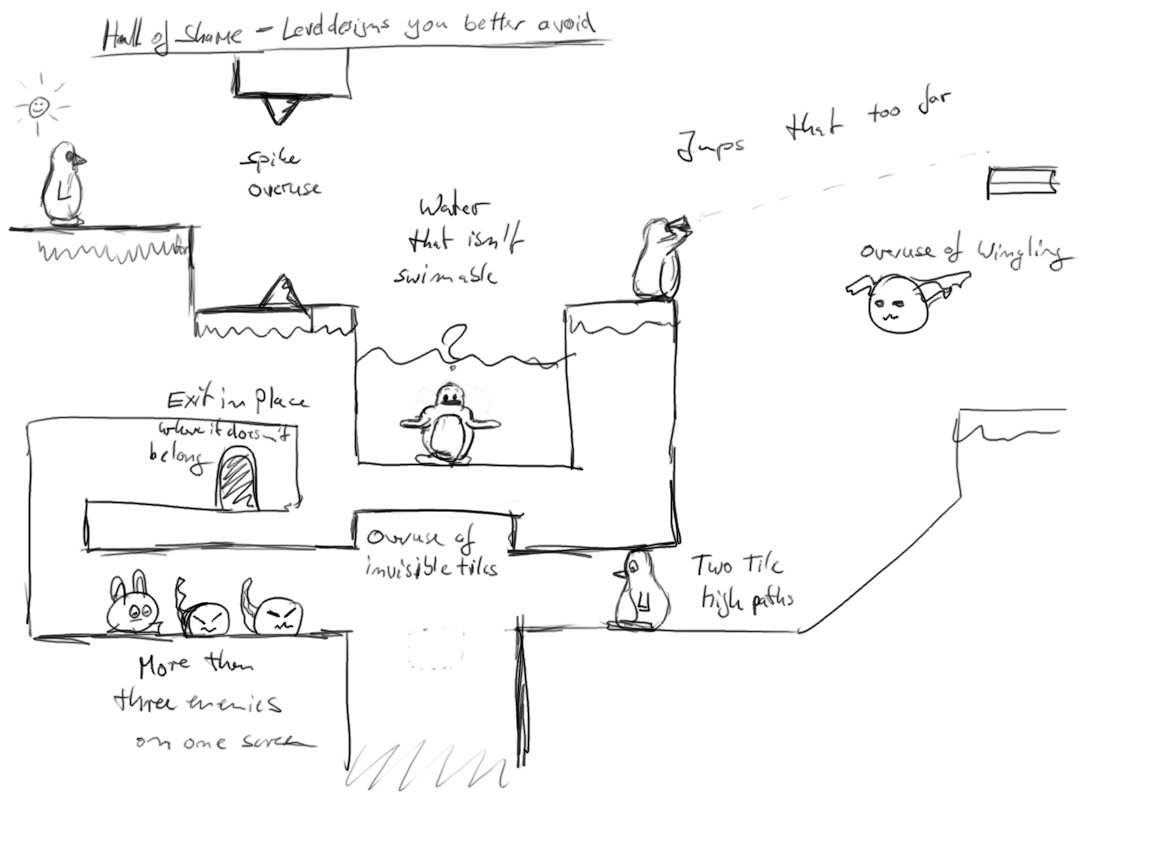 Hall of Shame - Leveldesigns you better avoid
Spike
overuse
Water
that isn't
swimable
Jmps that too far
Overuse of Wingling
Exit in Place
where it doesn't
belong
Overuse of
invisible tiles
Two Tile
high paths
More then
three enemies
on one screen
?